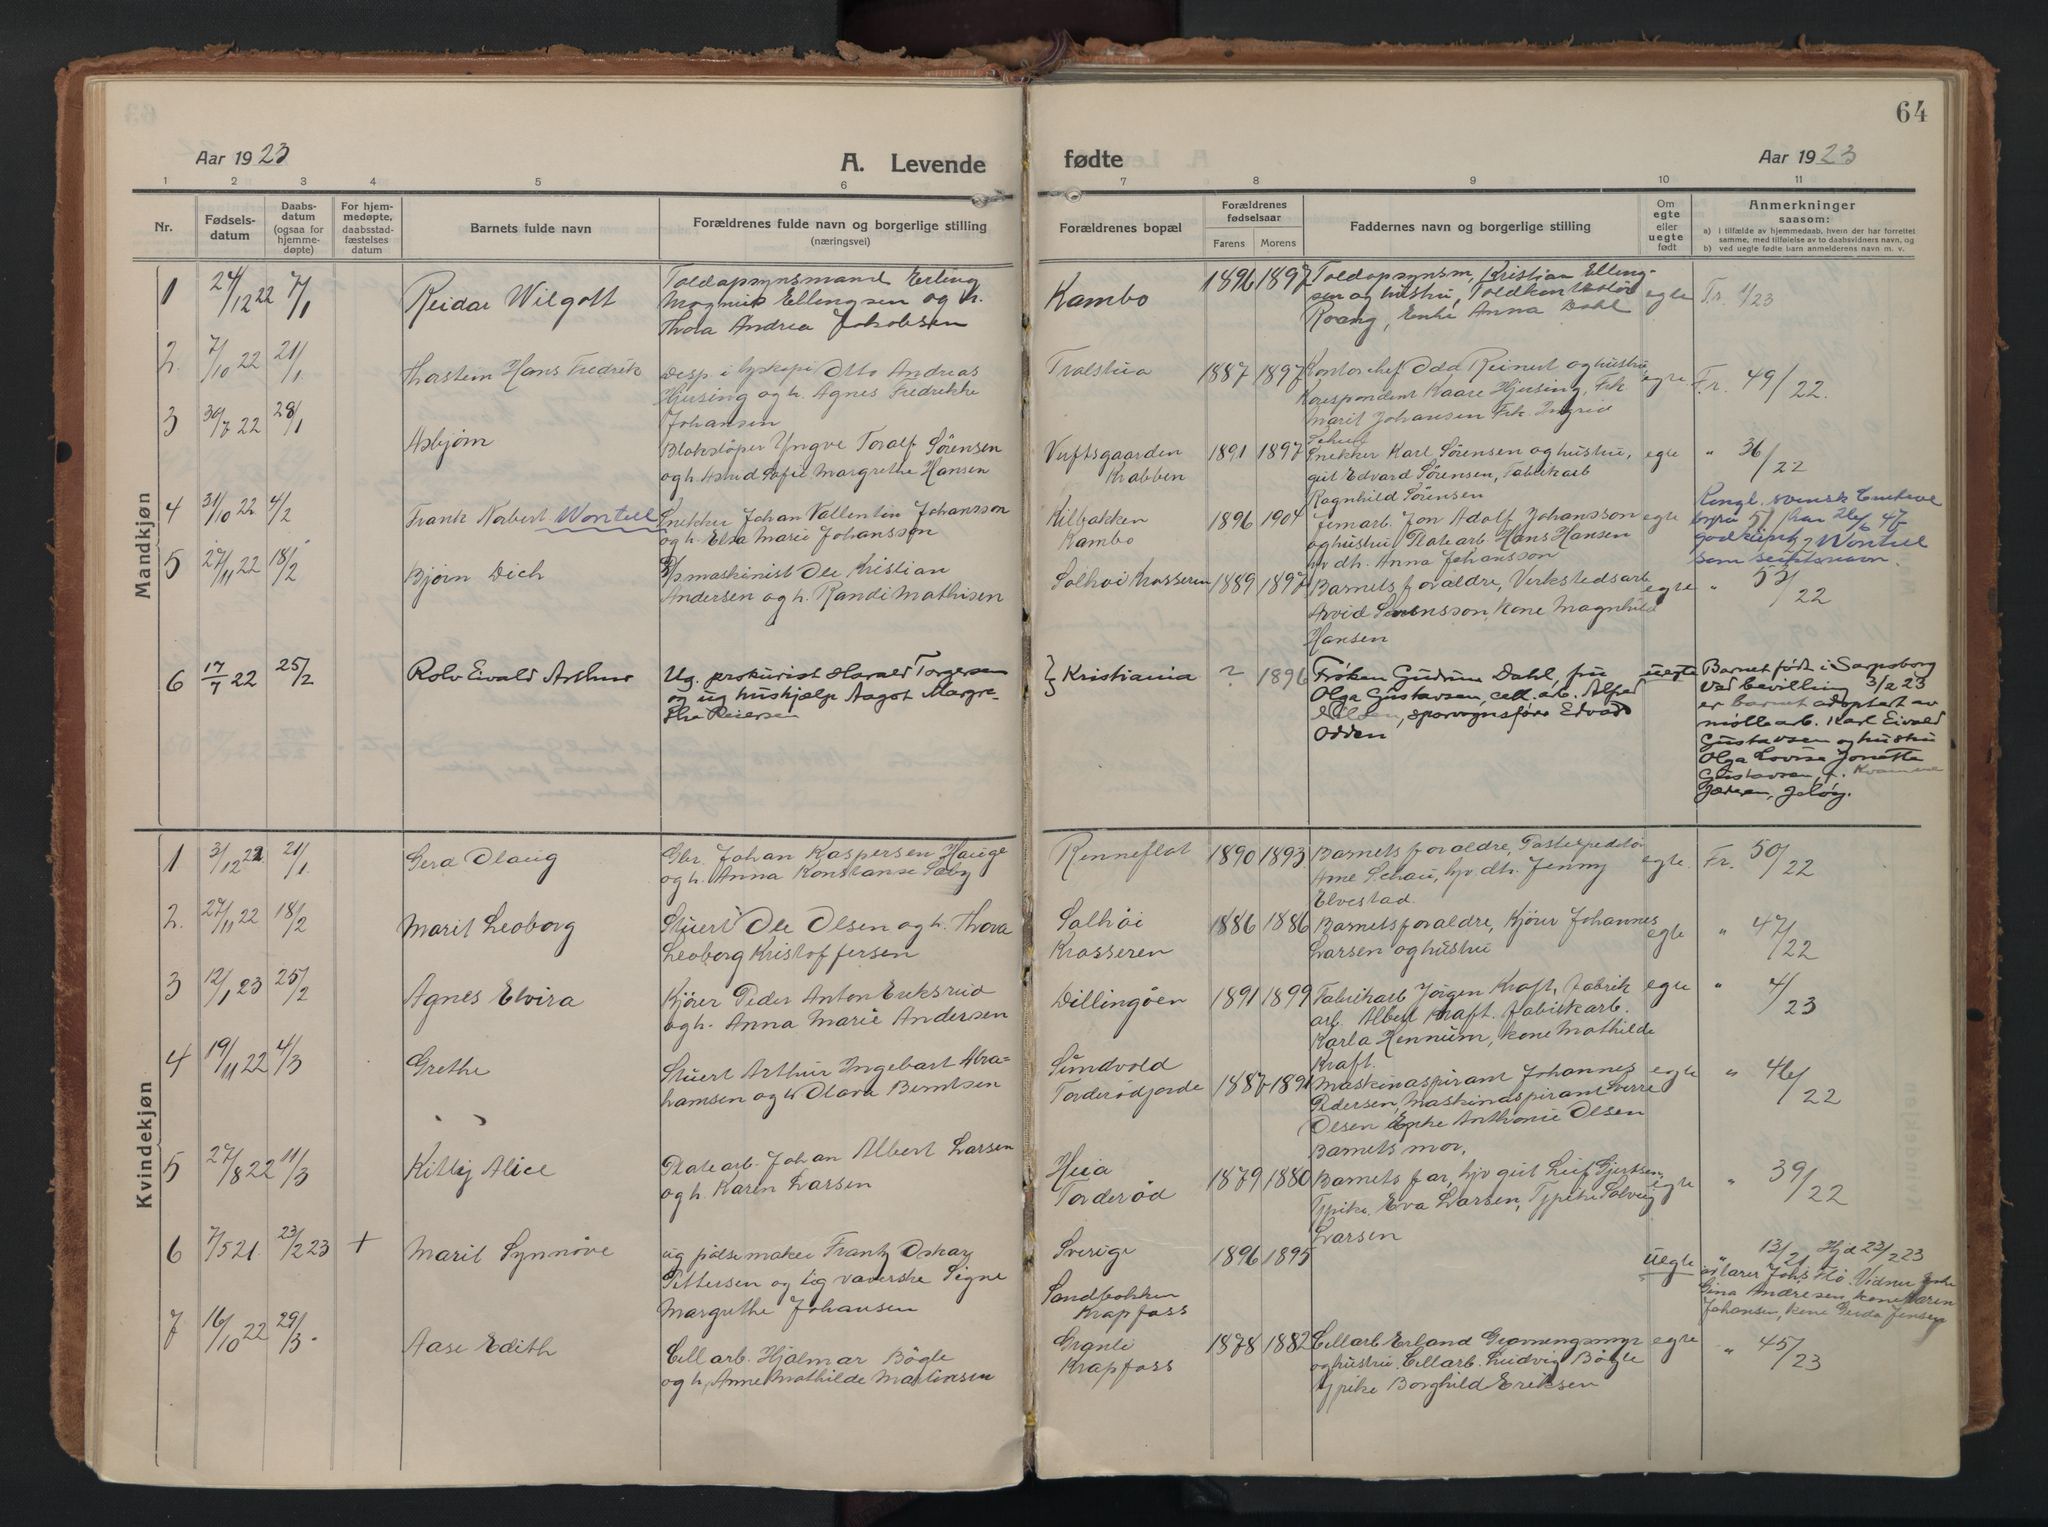 64
Aar 1923
A. Levende
fødte
Aar 1923
1 2 3 4 5 6 7 8 9 10 11
Nr.
Fødsels-
datum
Daabs-
datum
(ogsaa for
hjemme-
døpte)
For hjem-
medøpte,
daabsstad-
fæstelses
datum
Barnets fulde navn
Forældrenes fulde navn og borgerlige stilling
(næringsvei)
Forældrenes bopæl
Forældrenes
fødselsaar
Farens Morens
Faddernes navn og borgerlige stilling
Om
egte
eller
uegte
født
Anmerkninger
saasom:
a) I tilfælde av hjemmedaab, hvem der har forrettet
samme, med tilføielse av to daabsvidners navn, og
b) ved uegte fødte barn anmelderens navn m. v.
Mandkjøn
1 24/12 22 7/1 Reidar Wilgott
Toldopsynsmand Erling
Magnus Ellingsen og h.
Thora Andrea Jakobsen
Kambo 1896 1897
Toldopsynsm. Kristian Elling-
sen og hustru, Toldkontrolør
Roang, Enke Anna Dahl
egte Fr. 1/23
2 7/10 22 21/1 Thorstein Hans Fredrik
Otto Andreas
Hjersing og h. Agnes Fredrikke
Johansen
1887 1897
Kontorchef Odd Reinert og hustru
Korespondent Kaare Hjersing, Frk.
Marit Johansen Frk. Ingrid
egte Fr. 49/22.
3 30/7 22 28/1 Asbjørn
Yngve Toralf Sørensen
og h. Astrid Sofie Margrethe Hansen
Verftsgaarden
Krabben
1891 1897
Snekker Karl Sørensen og hustru,
gut Edvard Sørensen, Fabrikarb
Ragnhild Sørensen
egte " 36/22
4 31/10 22 4/2 Frank Norbert Wontell
Snekker Johan Vallentin Johansson
og h. Elsa Marie Johansson
Kilbakken
Kambo
1896 1904
Jernarb. Jon Adolf Johansson
og hustru Platearb Hans Hansen
hv dtr. Anna Johansson
egte
Kongl. svensk
har 26/6 47
godkjent Wontell
som slektsnavn.
5 27/11 22 18/2 Bjørn Dich
maskinist Ole Kristian
Andersen og h. Randi Mathisen
Solhøi Krosseren 1889 1897
Barnets foraldre, Verkstedsarb
Arvid Sørensson, Kone Magnhild
Hansen
egte " 53/22
6 17/7 22 25/2 Rolv Eivald Arthur
Ug. prokurist Harald Torgersen
og ug hushjælp Aagot Margre-
the Reiersen
} Kristiania ? 1896
Frøken Gudrun Dahl, fru
Olga Gustavsen, cell. arb. Alfred
Nilsen, sporvognsfører Edvard
Odden
uegte
Barnet født i Sarpsborg
Ved bevilling 3/2 23
er barnet adoptert av
møllearb. Karl Eivald
Gustavsen og hustru
Olga Lovise Jonette
Gustavsen, f.
Jeløy.
Kvindekjøn
1 3/12 22 21/1 Gera Olaug
Gbr. Johan Kaspersen Hauge
og h. Anna Konstanse Saby
Renneflot 1890 1893
Barnets foraldre, Postexpeditør
Arne Schau, hjv. dtr. Jenny
Elvestad.
egte. Fr. 50/22
2. 27/11 22 18/2 Marit Leoborg
Stuert Ole Olsen og h. Thora
Leoborg Kristoffersen
Solhøi
Krosseren
1886 1886
Barnets foraldre, Kjører Johannes
Larsen og hustru
egte " 47/22
3 12/1 23 25/2 Agnes Elvira
Kjører Peder Anton Eriksrud
og h. Anna Marie Andersen
Dillingøen 1891 1899
Fabrikarb Jørgen Kraft, Fabrik
arb. Albert Kraft. Fabrikarb.
Karla Hennum, kone Mathilde
Kraft.
egte " 4/23
4 19/11 22 4/3 Grethe
Stuert Arthur Ingebart Abra=
hamsen og h Olava Berntsen
Sundvold
Torderødjorde
1887 1891
Maskinaspirant Johannes
Pedersen, Maskinaspirant Sverre
Olsen Enke Anthonie Olsen
Barnets mor,
egte " 46/22
5 27/8 22 11/3 Kitty Alice
Platearb. Johan Albert Larsen
og h. Karen Larsen
Heia
Torderød
1879 1880
Barnets far, hjv gut Leif Gjertsen,
Tjpike Eva Larsen, Tjpike Solveig
Larsen
egte " 39/22
6 7/5 21. 23/2 23 + Marit Synnøve
ug pølsemaker Frantz Oskar
Pettersen og ug vaverske Signe
Margrethe Johansen
Sverige
Sandbakken
Krapfoss
1896 1895
uegte
" 13/21 Hjd 23/2 23
Johs. Flø. Vidner
Gina Andresen, kone Karen
Johansen, kone Gerda Jensen
7 16/10 22 29/3. Aase Edith
Cellarb. Hjalmar Bøgle
og h. Anne Mathilde Martinsen
Granli
Krapfoss
1878 1882
Cellarb. Erland Grønningsmyr
og hustru. Cellarb. Ludvig Bøgle
Tjpike Borghild Eriksen
egte " 45/23